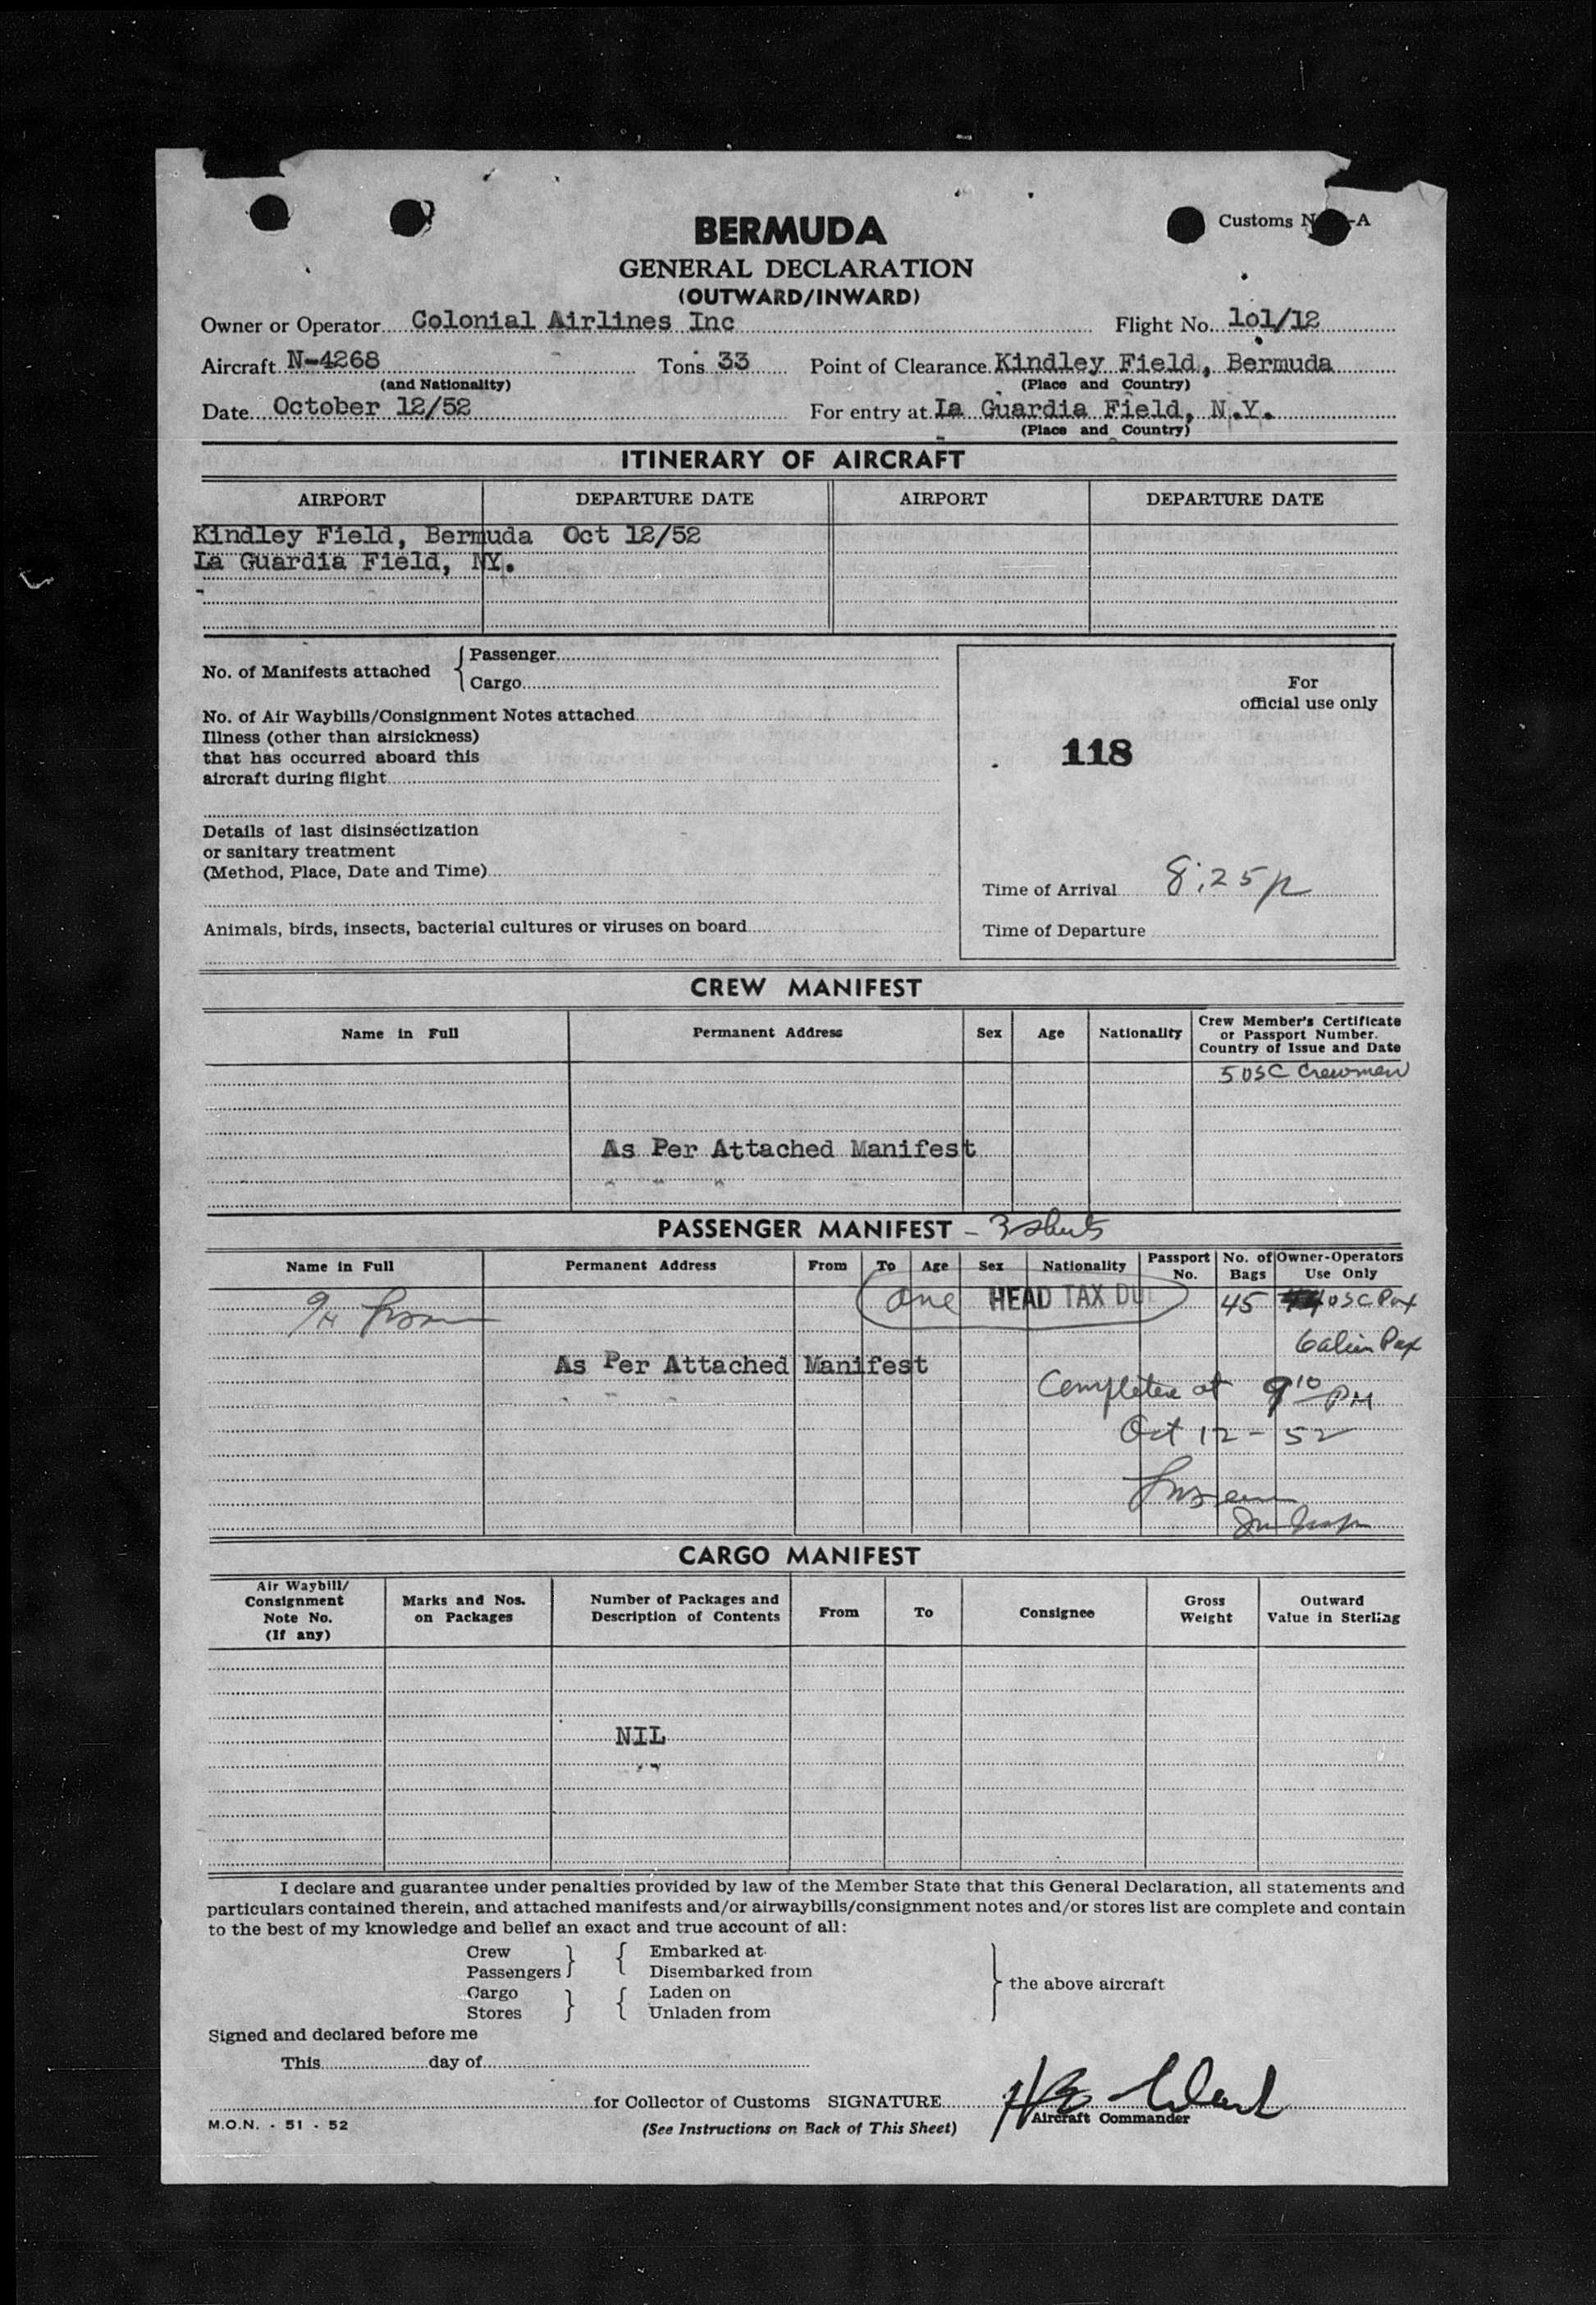 BERMUDA
Customs N -A
GENERAL DECLARATION
(OUTWARD/INWARD)
Owner or Operator Colonial Airlines Inc Flight No. 101/12
Aircraft N-4268 Tons 33 Point of Clearance Kindley Field, Bermuda
(and Nationality) (Place and Country)
Date October 12/52 For entry at La Guardia Field, N.Y.
(Place and Country)
ITINERARY OF AIRCRAFT
AIRPORT DEPARTURE DATE AIRPORT DEPARTURE DATE
Kindley Field, Bermuda Oct 12/52
La Guardia Field, NY.
No. of Manifests attached { Passenger
Cargo
For
official use only
No. of Air Waybills/Consignment Notes attached
Illness (other than airsickness)
that has occurred aboard this
aircraft during flight
118
Details of last disinsectization
or sanitary treatment
(Method, Place, Date and Time)
Time of Arrival 8:25p
Animals, birds, insects, bacterial cultures or viruses on board
Time of Departure
CREW MANIFEST
Name in Full Permanent Address Sex Age Nationality Crew Member's Certificate
or Passport Number.
Country of Issue and Date
5 USC Crewmen
As Per Attached Manifest
PASSENGER MANIFEST - 3 sheets
Name in Full Permanent Address From To Age Sex Nationality Passport No. No. of Bags Owner-Operators Use Only
One HEAD TAX DUE 45 USC Pax
6 alien Pax
As Per Attached Manifest
Completed at 9 10 PM
Oct 12 - 52
CARGO MANIFEST
Air Waybill/ Consignment Note No. (If any) Marks and Nos. on Packages Number of Packages and Description of Contents From To Consignee Gross Weight Outward Value in Sterling
NIL
I declare and guarantee under penalties provided by law of the Member State that this General Declaration, all statements and
particulars contained therein, and attached manifests and/or airwaybills/consignment notes and/or stores list are complete and contain
to the best of my knowledge and belief an exact and true account of all:
Crew } { Embarked at
Passengers Disembarked from
Cargo } { Laden on
Stores Unladen from
} the above aircraft
Signed and declared before me
This day of
for Collector of Customs SIGNATURE
Aircraft Commander
M.O.N. - 51 - 52 (See Instructions on Back of This Sheet)